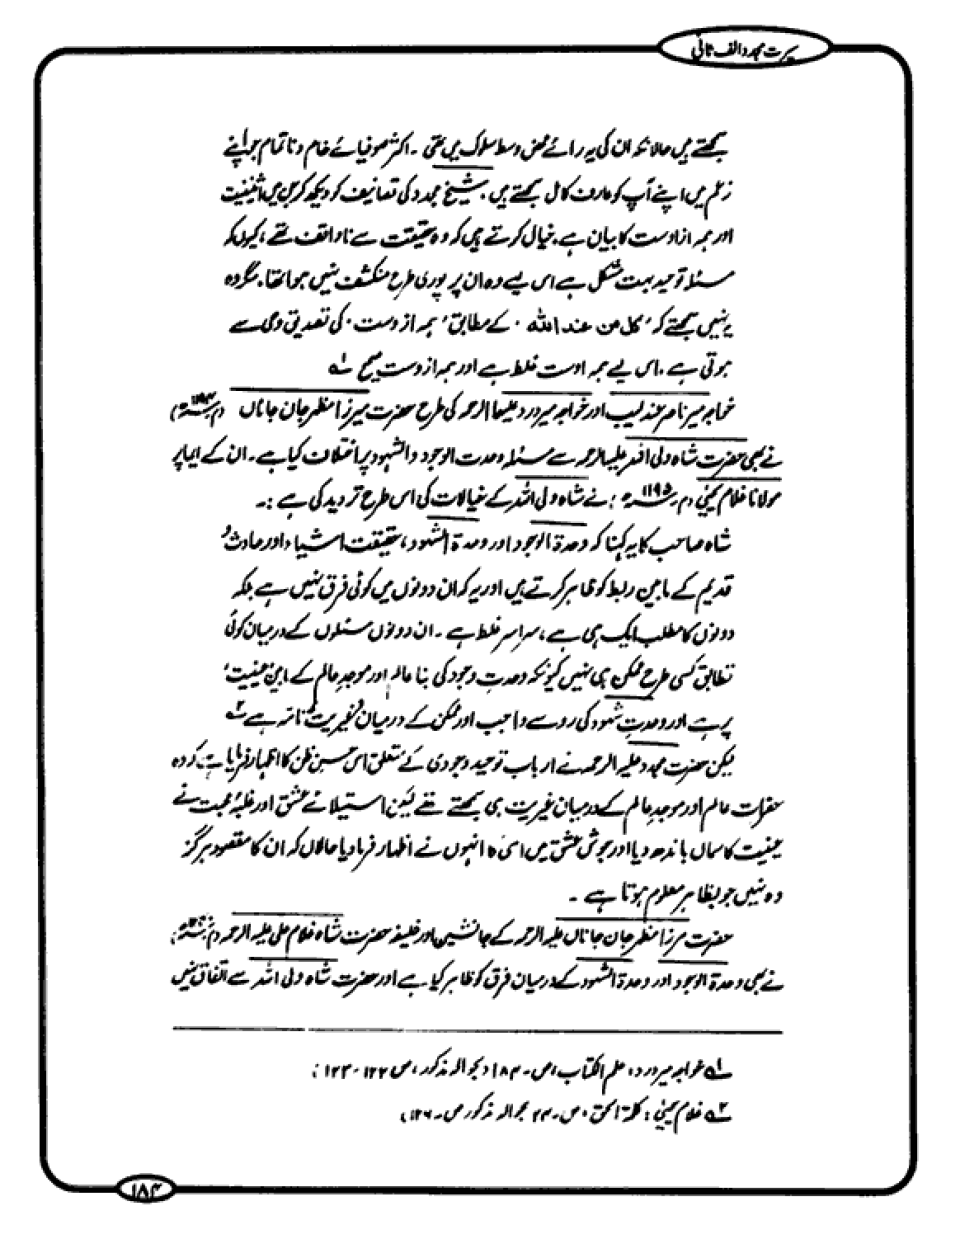 سیرت مجدد الف ثانی
سمجھتے ہیں حالانکہ ان کی یہ رائے محض وسط سلوک میں تھی ۔ اکثر صوفیائے خام و ناتمام جو اپنے
زعم میں اپنے آپ کو عارف کامل سمجھتے ہیں، شیخ مجدد کی تصانیف کو دیکھ کر جن میں اثنینیت
اور ہمہ از اوست کا بیان ہے، خیال کرتے ہیں کہ وہ حقیقت سے ناواقف تھے، کیوں کہ
مسئلہ توحید بہت مشکل ہے اس لیے وہ ان پر پوری طرح منکشف نہیں ہوا تھا، مگر وہ
یہ نہیں سمجھتے کہ ’کل من عند اللہ‘ کے مطابق ’ہمہ از وست‘ کی تصدیق وحی سے
ہوتی ہے، اس لیے ہمہ اوست غلط ہے اور ہمہ از وست صحیح ۱؎
خواجہ میر ناصر عندلیب اور خواجہ میر درد علیہما الرحمہ کی طرح حضرت میرزا مظہر جان جاناں
نے بھی حضرت شاہ ولی اللہ علیہ الرحمہ سے مسئلہ وحدت الوجود والشہود پر اختلاف کیا ہے۔ ان کے ایما پر
مولانا غلام یحییٰ (م ۱۱۹۵ھ) نے شاہ ولی اللہ کے خیالات کی اس طرح تردید کی ہے :۔
شاہ صاحب کا یہ کہنا کہ وحدۃ الوجود اور وحدۃ الشہود، حقیقت اشیاء اور حادث و
قدیم کے مابین ربط کو ظاہر کرتے ہیں اور یہ کہ ان دونوں میں کوئی فرق نہیں ہے بلکہ
دونوں کا مطلب ایک ہی ہے، سراسر غلط ہے ۔ ان دونوں مسئلوں کے درمیان کوئی
تطابق کسی طرح ممکن ہی نہیں کیونکہ وحدتِ وجود کی بنا عالم اور موجدِ عالم کے مابین ’عینیت‘
پر ہے اور وحدتِ شہود کی روسے واجب اور ممکن کے درمیان ’غیریت‘ تامہ ہے ۲؎
لیکن حضرت مجدد علیہ الرحمہ نے ارباب توحید وجودی کے متعلق اس حسن ظن کا اظہار فرمایا ہے کہ وہ
حضرات عالم اور موجدِ عالم کے درمیان غیریت ہی سمجھتے تھے لیکن استیلائے عشق اور غلبۂ محبت نے
عینیت کا سماں باندھ دیا اور جوش عشق میں اسی کا انہوں نے اظہار فرما دیا حالاں کہ ان کا مقصود ہرگز
وہ نہیں جو بظاہر معلوم ہوتا ہے ۔
حضرت مرزا مظہر جان جاناں علیہ الرحمہ کے جانشین اور خلیفہ حضرت شاہ غلام علی علیہ الرحمہ
نے بھی وحدۃ الوجود اور وحدۃ الشہود کے درمیان فرق کو ظاہر کیا ہے اور حضرت شاہ ولی اللہ سے اتفاق نہیں
۱؎ خواجہ میر درد: علم الکتاب، ص۔۱۸۴ (بحوالہ مذکور، ص ۱۲۲-۱۲۳)
۲؎ غلام یحییٰ: کلمۃ الحق، ص۔۲۴ بحوالہ مذکور ص۔۱۲۶)
۱۸۴